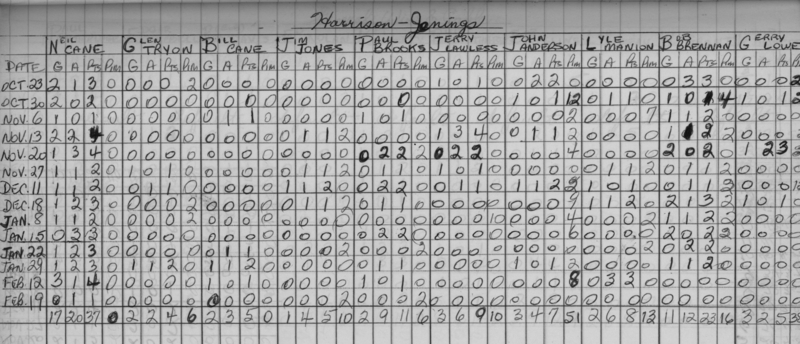 Harrison-Jenings
NEIL CANE GLEN TRYON BILL CANE JIM JONES PAUL BROOKS JERRY LAWLESS JOHN ANDERSON LYLE MANION BOB BRENNAN GERRY LOWE
DATE G A Pts Pim G A Pts Pim G A Pts Pim G A Pts Pim G A Pts Pim G A Pts Pim G A Pts Pim G A Pts Pim G A Pts Pim G A Pts Pim
OCT 23 2 1 3 0 0 0 0 2 0 0 0 0 0 0 0 0 0 0 0 0 1 0 1 0 0 2 2 0 0 0 0 0 0 3 3 0 0 0 0 2
OCT 30 2 0 2 0 0 0 0 0 0 0 0 0 0 0 0 0 0 0 0 0 0 0 0 0 1 0 1 12 0 1 1 0 1 0 1 4 1 0 1 2
NOV. 6 1 0 1 0 0 0 0 0 0 1 1 0 0 0 0 0 1 0 1 0 0 0 0 0 0 0 0 2 0 0 0 7 1 1 2 0 0 0 0 0
NOV. 13 2 2 4 0 0 0 0 0 0 0 0 0 0 1 1 2 0 0 0 0 1 3 4 0 0 1 1 2 0 0 0 0 1 2 2 0 0 0 0
NOV. 20 1 3 4 0 0 0 0 0 0 0 0 0 0 0 0 0 0 2 2 2 0 2 2 0 0 0 4 0 0 0 0 2 0 2 0 1 2 3 2
NOV. 27 1 1 2 0 1 0 1 0 0 0 0 0 0 1 1 2 0 1 1 0 0 1 1 0 0 0 0 0 0 1 1 2 0 1 1 2 0 0 0 0
DEC. 11 1 1 2 0 0 1 1 0 0 0 0 0 1 1 2 0 0 2 2 0 0 1 1 0 1 1 2 1 0 1 0 0 1 1 2 0 0 0
DEC. 18 1 2 3 0 0 0 0 2 0 0 0 0 0 1 1 2 0 1 1 0 0 0 0 0 0 0 0 0 1 1 2 0 2 1 3 2 1 0 1 0
JAN. 8 1 1 2 0 0 0 0 2 0 0 0 0 0 0 0 0 0 0 0 0 0 0 0 10 0 0 0 4 0 0 0 2 1 1 2 2 0 0 0 0
JAN. 15 0 3 3 0 0 0 0 0 0 0 0 0 0 0 0 0 0 2 2 0 0 0 0 0 0 0 0 6 0 0 0 0 2 0 2 2 0 0 0 0
JAN. 22 1 2 3 0 0 0 0 0 0 1 1 0 0 0 0 2 0 0 0 2 0 0 0 0 0 0 0 0 0 0 0 2 0 2 2 0 0 0 0
JAN. 29 1 2 3 0 1 1 2 0 1 1 2 0 0 0 0 0 0 1 1 0 0 0 0 0 1 0 1 2 0 0 0 0 1 1 2 0 0 0 0 0
FEB. 12 3 1 4 0 0 0 0 0 1 0 1 0 0 0 0 0 1 0 1 0 0 0 0 0 0 0 0 8 0 3 3 0 0 0 0 0 0 0 0 0
FEB. 19 0 1 1 0 0 0 0 0 0 0 0 0 0 0 0 2 0 0 0 2 0 0 0 0 0 0 0 0 0 0 0 0 0 0 0 0 0 0 0 0
17 20 37 0 2 2 4 6 2 3 5 0 1 4 5 10 2 9 11 6 3 6 9 10 3 4 7 51 2 6 8 13 11 12 23 16 3 2 5